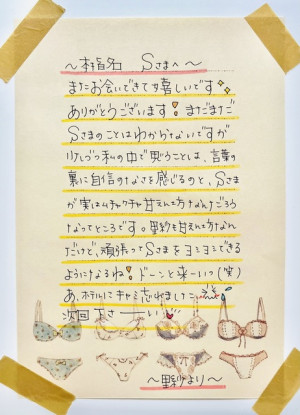 〜本指名 Sさまへ〜
またお会いできて嬉しいです
ありがとうございます！まだまだ
Sさまのことはわからないですが
少しづつ私の中で思うことは、言葉の
裏に自信のなさを感じるのと、Sさま
が実はムチャクチャ甘えん方なんだろうな
なってところです。里紗も甘えん方なん
だけど、頑張ってSさまをヨシヨシできる
ようになるね！ドーンと来ーいっ(笑)
あ、ホテルにキャミ忘れました
次回下さーーーい
〜里紗より〜